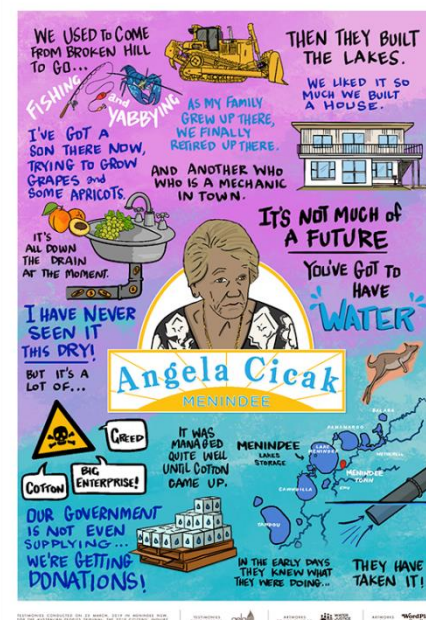 WE USED TO COME
FROM BROKEN HILL
TO GO...
FISHING
and
YABBYING
THEN THEY BUILT
THE LAKES.
WE LIKED IT SO
MUCH WE BUILT
A HOUSE.
AS MY FAMILY
GREW UP THERE,
WE FINALLY
RETIRED UP THERE.
I'VE GOT A
SON THERE NOW,
TRYING TO GROW
GRAPES and
SOME APRICOTS.
AND ANOTHER WHO
WHO IS A MECHANIC
IN TOWN.
IT'S
ALL DOWN
THE DRAIN
AT THE MOMENT.
IT'S NOT MUCH of
A FUTURE
YOU'VE GOT TO
HAVE
"WATER"
I HAVE NEVER
SEEN IT
THIS DRY!
BUT IT'S A
LOT OF...
Angela Cicak
MENINDEE
GREED
COTTON
BIG
ENTERPRISE!
IT WAS
MANAGED
QUITE WELL
UNTIL COTTON
CAME UP.
MENINDEE
LAKES
STORAGE
BALAKA
PAMAMAROO
LAKE
MENINDEE
WETHERELL
MENINDEE
TOWN
CAWNDILLA
TANDOU
OUR GOVERNMENT
IS NOT EVEN
SUPPLYING...
WE'RE GETTING
DONATIONS!
IN THE EARLY DAYS
THEY KNEW WHAT
THEY WERE DOING...
THEY HAVE
TAKEN IT!
TESTIMONIES CONDUCTED ON 23 MARCH, 2019 IN MENINDEE NSW,
TESTIMONIES
ARTWORKS